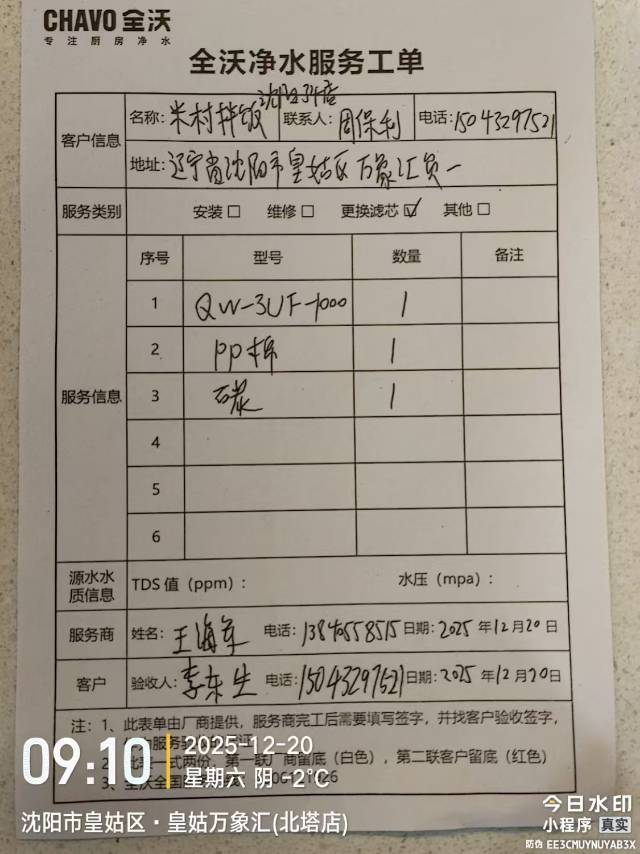 CHAVO 全沃
专注厨房净水
全沃净水服务工单
客户信息
名称：米村拌饭 沈阳3店 联系人：周保利 电话：15043297521
地址：辽宁省沈阳市皇姑区万象汇负一
服务类别 安装□ 维修□ 更换滤芯☑ 其他□
服务信息
序号 型号 数量 备注
1 QW-3UF-1000 1
2 PP棉 1
3 碳 1
4
5
6
源水水质信息 TDS 值（ppm）： 水压（mpa）：
服务商 姓名：王海军 电话：13840558515 日期：2025 年 12 月 20 日
客户 验收人：李东生 电话：15043297521 日期：2025 年 12 月 20 日
注：1、此表单由厂商提供，服务商完工后需要填写签字，并找客户验收签字，
一式两份，第一联厂商留底（白色），第二联客户留底（红色）
3、全沃全国
09:10 2025-12-20
星期六 阴 -2℃
沈阳市皇姑区·皇姑万象汇(北塔店)
今日水印
小程序 真实
防伪 EE3CMUYNUYAB3X